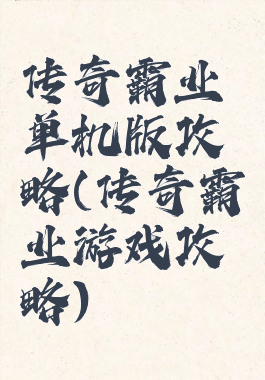 传奇霸业
单机版攻
略(传奇霸
业游戏攻
略)